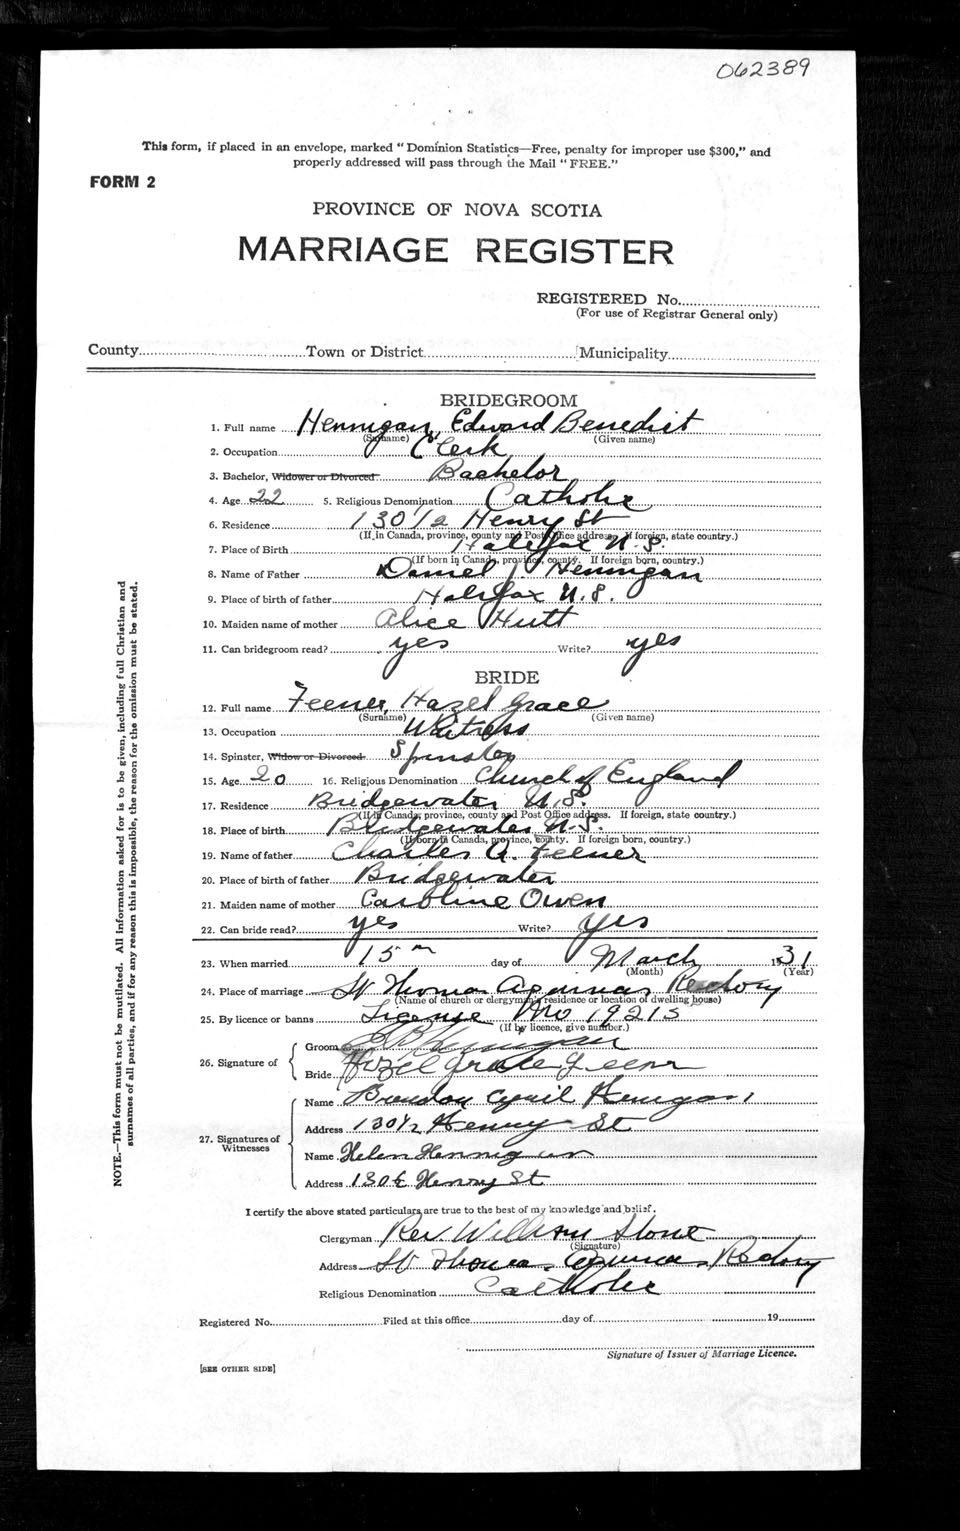 062389
This form, if placed in an envelope, marked "Dominion Statistics—Free, penalty for improper use $300," and
properly addressed will pass through the Mail "FREE."
FORM 2
PROVINCE OF NOVA SCOTIA
MARRIAGE REGISTER
REGISTERED No.
(For use of Registrar General only)
County Town or District Municipality
BRIDEGROOM
1. Full name Hennigan, Edward Benedict
(Surname) (Given name)
2. Occupation Clerk
3. Bachelor, Widower or Divorced Bachelor
4. Age 22 5. Religious Denomination Catholic
6. Residence 130 1/2 Henry St
(If in Canada, province, county and Post Office address. If foreign, state country.)
7. Place of Birth Halifax N.S.
(If born in Canada, province, county. If foreign born, country.)
8. Name of Father Daniel J Hennigan
9. Place of birth of father Halifax N.S.
10. Maiden name of mother Alice Hutt
11. Can bridegroom read? yes Write? yes
BRIDE
12. Full name Feener, Hazel Grace
(Surname) (Given name)
13. Occupation Waitress
14. Spinster, Widow or Divorced Spinster
15. Age 20 16. Religious Denomination Church of England
17. Residence Bridgewater N.S.
(If in Canada, province, county and Post Office address. If foreign, state country.)
18. Place of birth Bridgewater N.S.
(If born in Canada, province, county. If foreign born, country.)
19. Name of father Charles A. Feener
20. Place of birth of father Bridgewater
21. Maiden name of mother Caroline Owen
22. Can bride read? yes Write? yes
23. When married 15 th day of March 1931
(Month) (Year)
24. Place of marriage St Thomas Aquinas Rectory
(Name of church or clergyman's residence or location of dwelling house)
25. By licence or banns License No 19215
(If by licence, give number.)
26. Signature of
Groom E B Hennigan
Bride Hazel Grace Feener
27. Signatures of Witnesses
Name Brendan Cyril Hennigan
Address 130 1/2 Henry St
Name Helen Hennigan
Address 130 1/2 Henry St
I certify the above stated particulars are true to the best of my knowledge and belief.
Clergyman Rev. William
(Signature)
Address St Thomas Aquinas Rectory
Religious Denomination Catholic
Registered No. Filed at this office day of 19
Signature of Issuer of Marriage Licence.
[SEE OTHER SIDE]
NOTE.—This form must not be mutilated. All information asked for is to be given, including full Christian and
surnames of all parties, and if for any reason this is impossible, the reason for the omission must be stated.